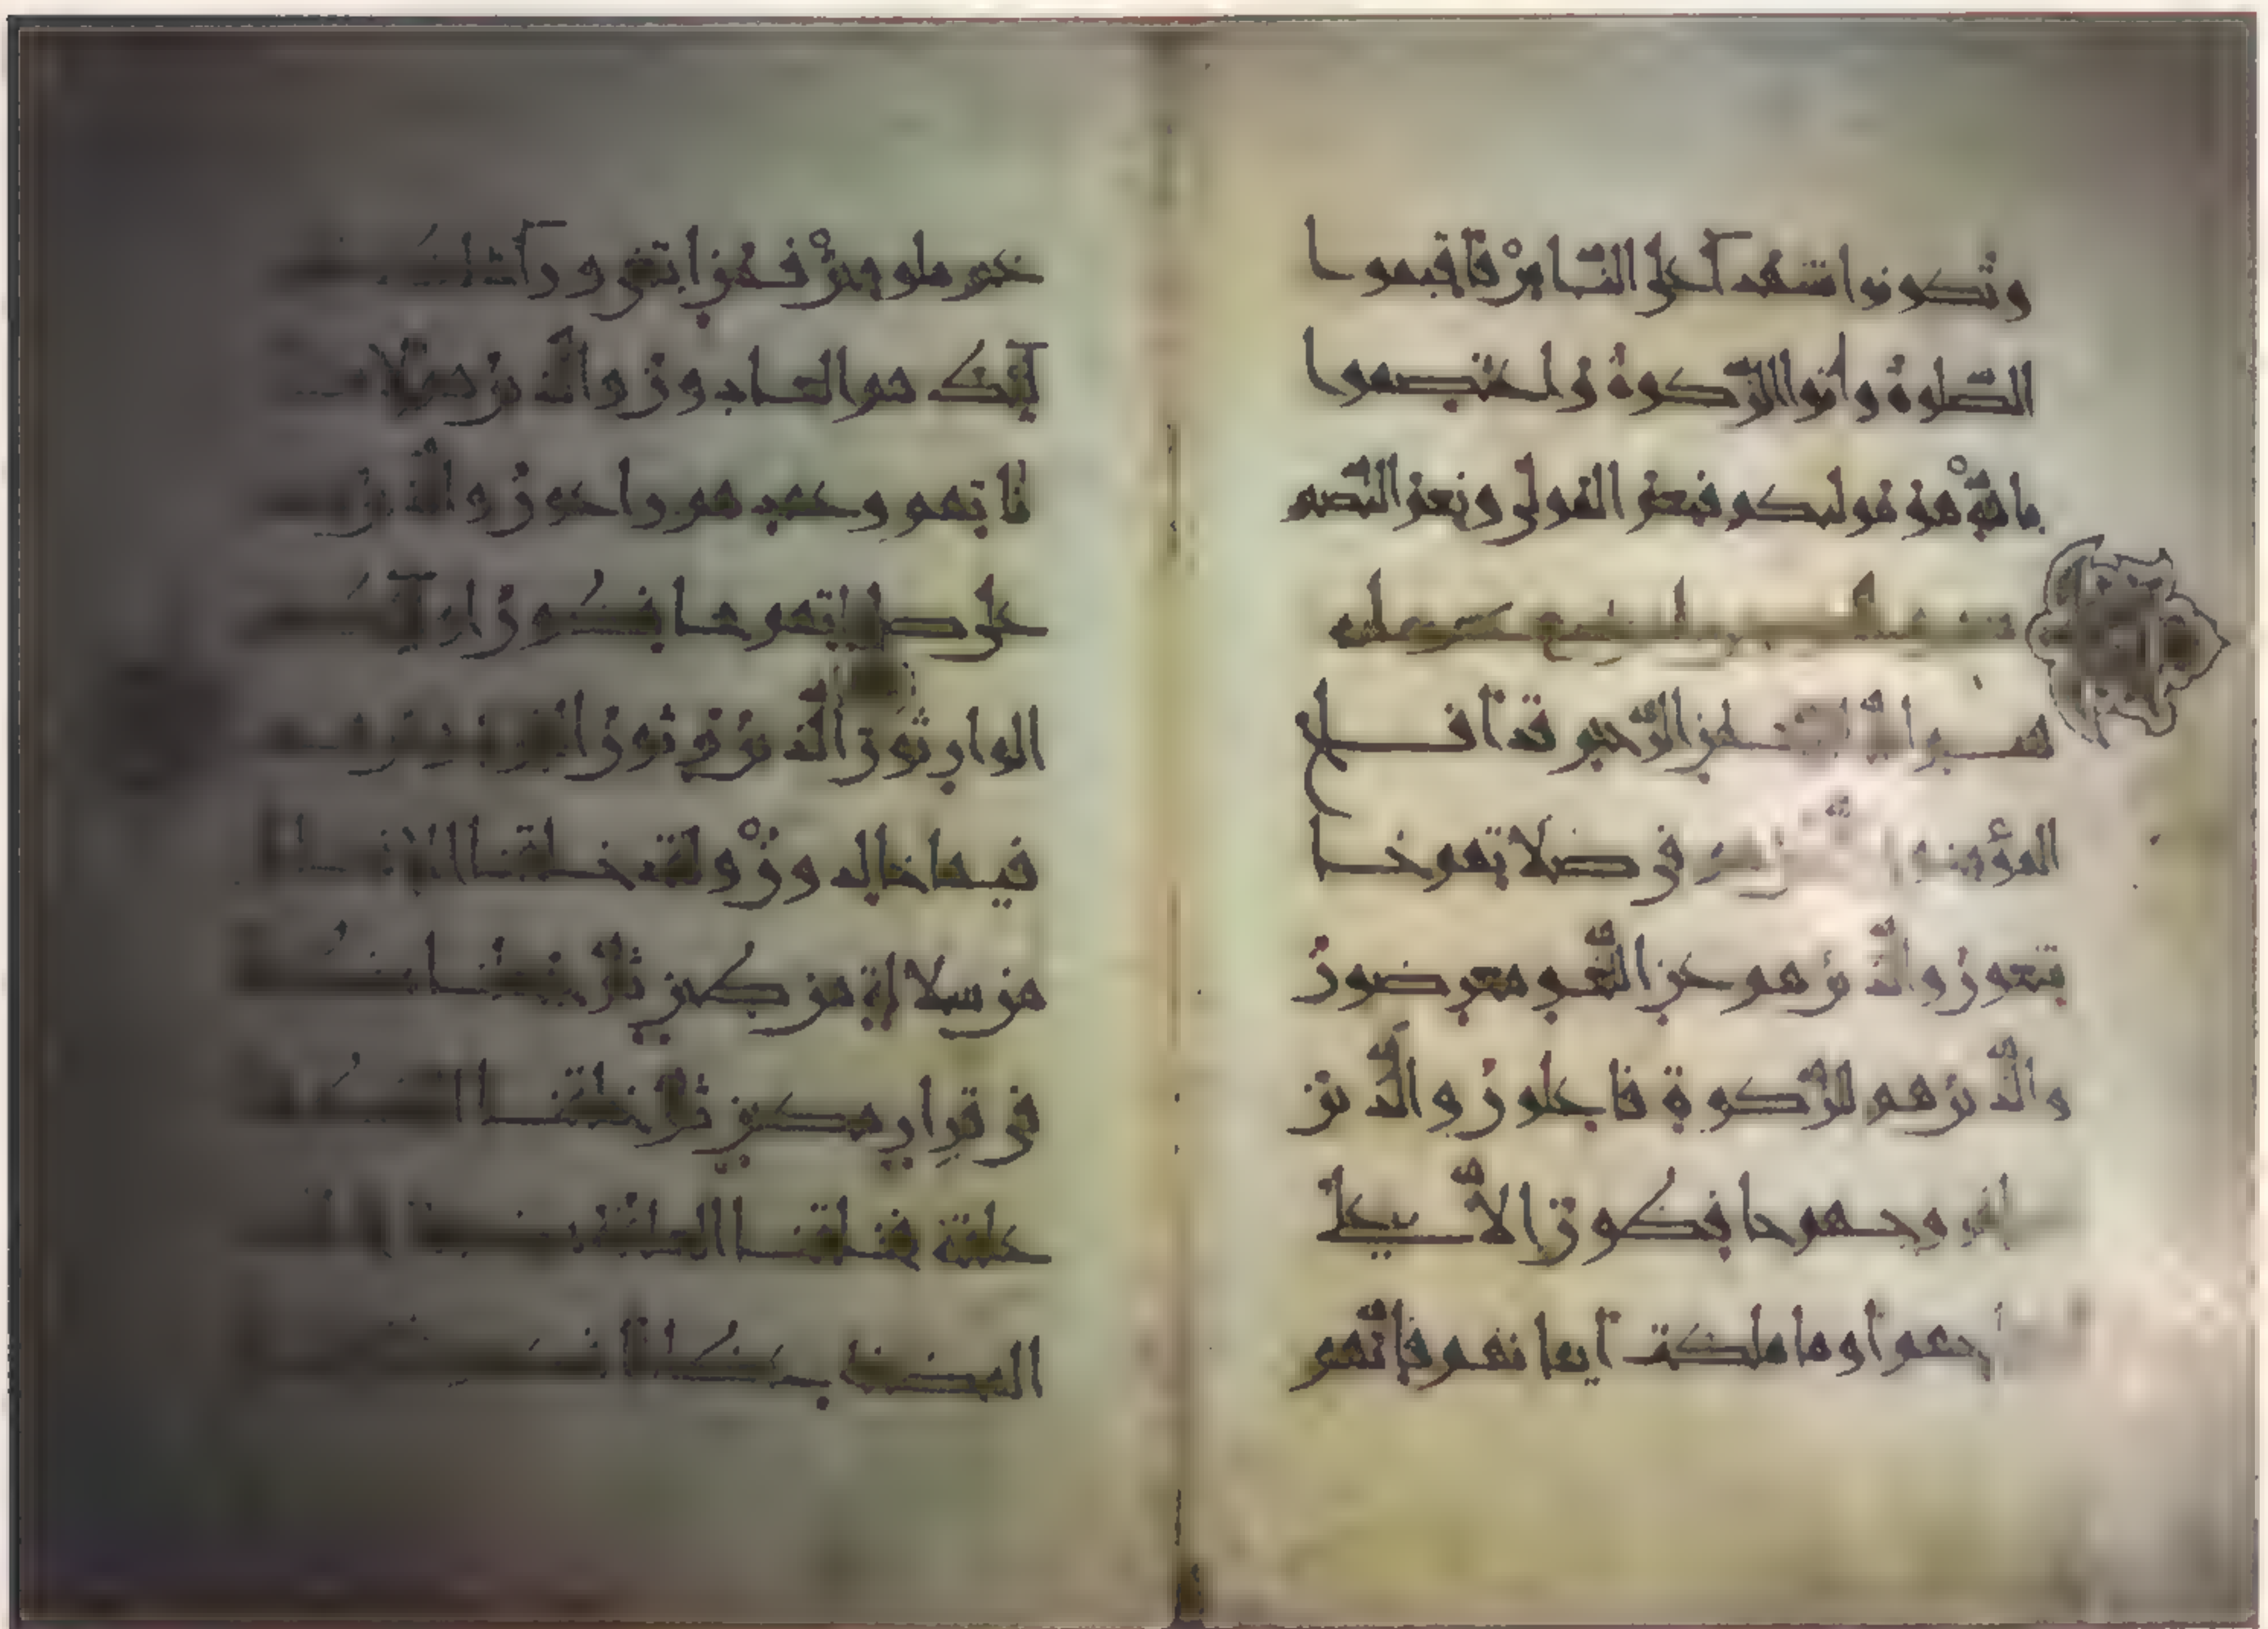 وتكونوا شهدآ على الناس فأقيموا
الصلوة وأتوا الزكوة واعتصموا
بالله هو موليكم فنعم المولى ونعم النصير
بسم الله الرحمن الرحيم قد أفلح
المؤمنون الذين هم في صلاتهم خا
شعون والذين هم عن اللغو معرضون
والذين هم للزكوة فاعلون والذين
هم لفروجهم حافظون إلا على
أزوجهم أو ما ملكت أيمانهم فإنهم
غير ملومين فمن ابتغى ورآء ذلك
فأوليك هم العادون والذين هم لا
ماناتهم وعهدهم راعون والذين هم
على صلواتهم يحافظون أوليك هم
الوارثون الذين يرثون الفردوس هم
فيها خالدون ولقد خلقنا الإنسان
من سلالة من طين ثم جعلناه نطفة
في قرار مكين ثم خلقنا النطفة
علقة فخلقنا العلقة مضغة فخلقنا
المضغة عظاما فكسونا